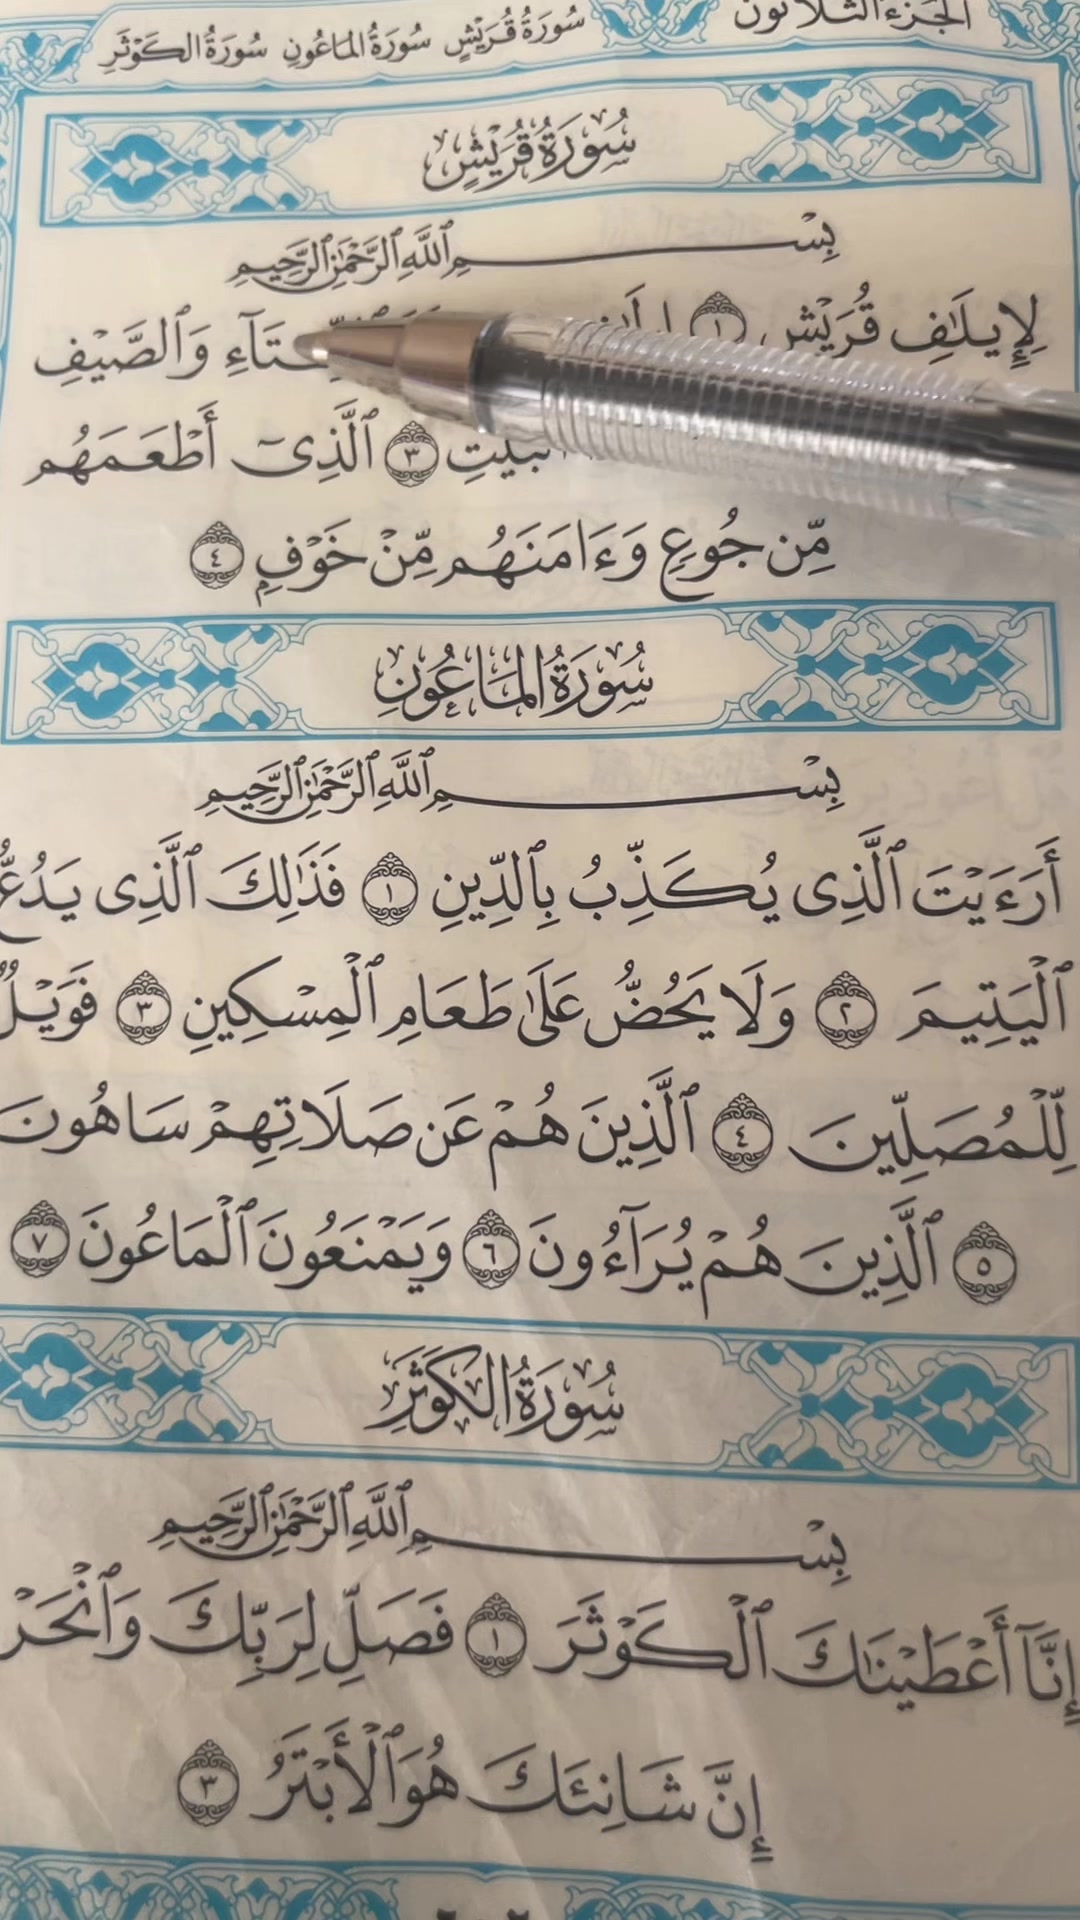 الجزء الثلاثون سورة قريش سورة الماعون سورة الكوثر
سُورَةُ قُرَيْشٍ
بِسْمِ ٱللَّهِ ٱلرَّحْمَٰنِ ٱلرَّحِيمِ
لِإِيلَٰفِ قُرَيْشٍ ١ وَٱلصَّيْفِ
ٱلَّذِىٓ أَطْعَمَهُم ٣
مِّن جُوعٍ وَءَامَنَهُم مِّنْ خَوْفٍۭ ٤
سُورَةُ المَاعُونِ
بِسْمِ ٱللَّهِ ٱلرَّحْمَٰنِ ٱلرَّحِيمِ
أَرَءَيْتَ ٱلَّذِى يُكَذِّبُ بِٱلدِّينِ ١ فَذَٰلِكَ ٱلَّذِى يَدُعُّ
ٱلْيَتِيمَ ٢ وَلَا يَحُضُّ عَلَىٰ طَعَامِ ٱلْمِسْكِينِ ٣ فَوَيْلٌ
لِّلْمُصَلِّينَ ٤ ٱلَّذِينَ هُمْ عَن صَلَاتِهِمْ سَاهُونَ
٥ ٱلَّذِينَ هُمْ يُرَآءُونَ ٦ وَيَمْنَعُونَ ٱلْمَاعُونَ ٧
سُورَةُ الكَوْثَرِ
بِسْمِ ٱللَّهِ ٱلرَّحْمَٰنِ ٱلرَّحِيمِ
إِنَّآ أَعْطَيْنَٰكَ ٱلْكَوْثَرَ ١ فَصَلِّ لِرَبِّكَ وَٱنْحَرْ
إِنَّ شَانِئَكَ هُوَ ٱلْأَبْتَرُ ٣